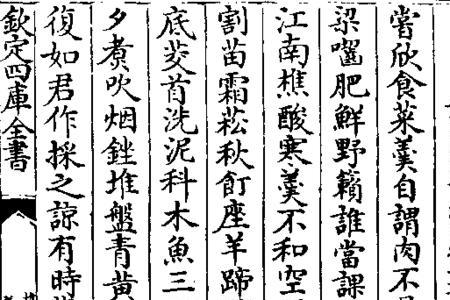 嘗欣食菜羮自謂肉不
梁囓肥鮮野籟誰當課
江南樵酸寒羮不和空
割苗霜菘秋飣座羊蹄
底芰首洗泥科木魚三
夕煮吹烟銼堆盤青黄
復如君作採之諒有時
欽定四庫全書